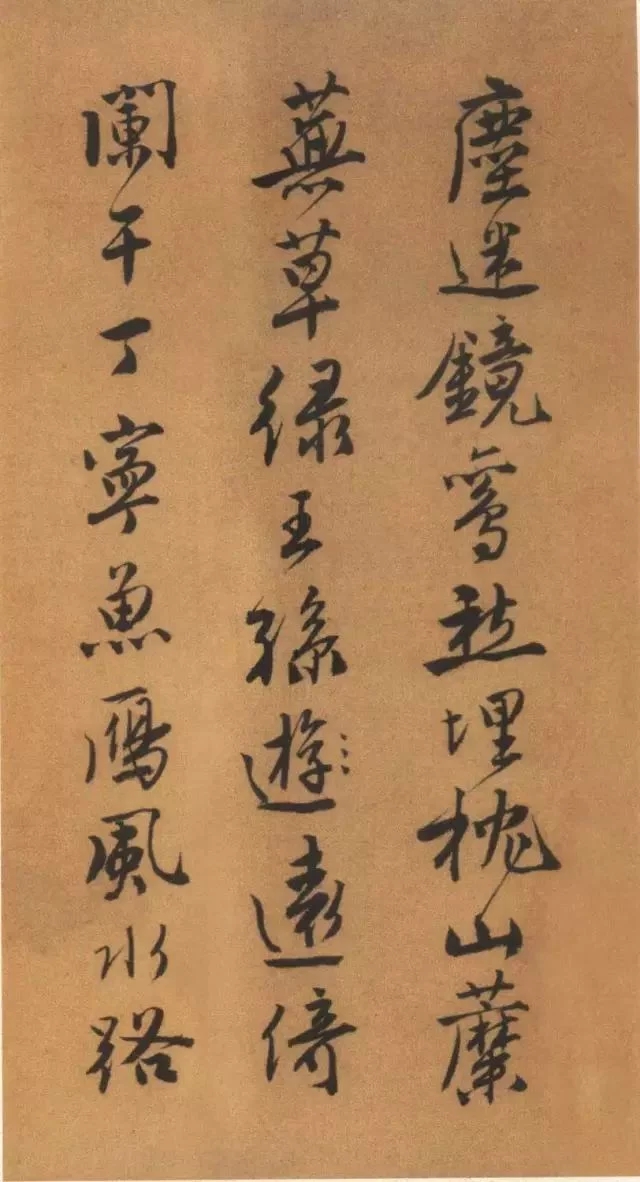 塵迷鏡鸞愁埋枕山蘼
蕪草緑王孫遊遠倚
闌干丁寧魚鴈風水路